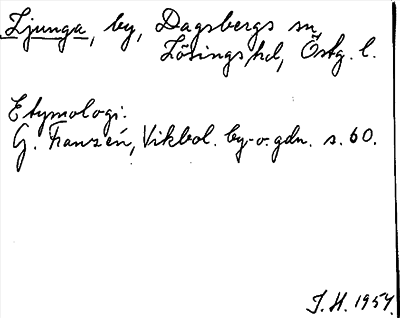 Ljunga, by, Dagsbergs sn,
Lösings hd, Östg. l.
Etymologi:
G. Franzén, Vikbol. by- o. gdn. s. 60.
J. H. 1954.